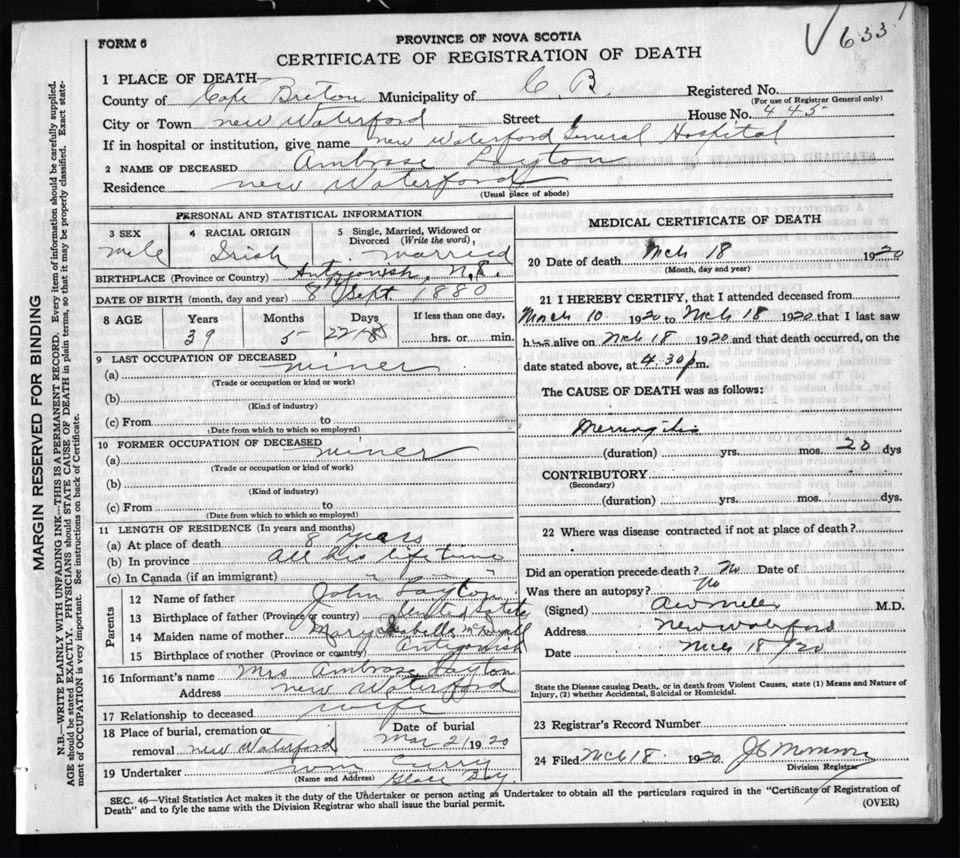 633
FORM 6
PROVINCE OF NOVA SCOTIA
CERTIFICATE OF REGISTRATION OF DEATH
1 PLACE OF DEATH
County of Cape Breton Municipality of C. B. Registered No.
(For use of Registrar General only)
City or Town New Waterford Street House No. 445
If in hospital or institution, give name New Waterford General Hospital
2 NAME OF DECEASED Ambrose Layton
Residence New Waterford
(Usual place of abode)
PERSONAL AND STATISTICAL INFORMATION
3 SEX 4 RACIAL ORIGIN 5 Single, Married, Widowed or Divorced (Write the word),
male Irish married
BIRTHPLACE (Province or Country) Antigonish, N.S.
DATE OF BIRTH (month, day and year) 8th Sept. 1880
8 AGE Years Months Days If less than one day,
39 5 hrs. or min.
9 LAST OCCUPATION OF DECEASED
(a) miner
(Trade or occupation or kind or work)
(b)
(Kind of industry)
(c) From to
(Date from which to which so employed)
10 FORMER OCCUPATION OF DECEASED
(a) miner
(Trade or occupation or kind of work)
(b)
(Kind of industry)
(c) From to
(Date from which to which so employed)
11 LENGTH OF RESIDENCE (In years and months)
(a) At place of death 8 years
(b) In province all his life time
(c) In Canada (if an immigrant) " " "
Parents
12 Name of father John Layton
13 Birthplace of father (Province or country) United States
14 Maiden name of mother Mary Isabelle
15 Birthplace of mother (Province or country) Antigonish
16 Informant's name Mrs Ambrose Layton
Address New Waterford
17 Relationship to deceased wife
18 Place of burial, cremation or Date of burial
removal New Waterford Mar 21 1920
19 Undertaker Wm Curry
(Name and Address) Glace Bay.
MEDICAL CERTIFICATE OF DEATH
20 Date of death Mch 18 1920
(Month, day and year)
21 I HEREBY CERTIFY, that I attended deceased from
March 10 1920 to Mch 18 1920 that I last saw
h alive on Mch 18 1920 and that death occurred, on the
date stated above, at 4.30 p m.
The CAUSE OF DEATH was as follows:
Meningitis
(duration) yrs. mos. 20 dys
CONTRIBUTORY
(Secondary)
(duration) yrs. mos. dys.
22 Where was disease contracted if not at place of death?
Did an operation precede death? No Date of
Was there an autopsy? No
(Signed) M.D.
Address New Waterford
Date Mch 18/20
State the Disease causing Death, or in death from Violent Causes, state (1) Means and Nature of
Injury, (2) whether Accidental, Suicidal or Homicidal.
23 Registrar's Record Number
24 Filed Mch 18 1920
Division Registrar
SEC. 46—Vital Statistics Act makes it the duty of the Undertaker or person acting as Undertaker to obtain all the particulars required in the "Certificate of Registration of
Death" and to fyle the same with the Division Registrar who shall issue the burial permit.
(OVER)
MARGIN RESERVED FOR BINDING
N.B.—WRITE PLAINLY WITH UNFADING INK—THIS IS A PERMANENT RECORD. Every item of information should be carefully supplied.
AGE should be stated EXACTLY. PHYSICIANS should STATE CAUSE OF DEATH in plain terms, so that it may be properly classified. Exact state-
ment of OCCUPATION is very important. See instructions on back of Certificate.